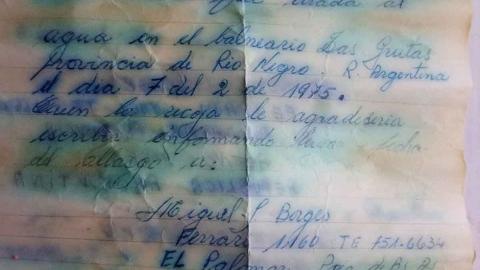 que tirada al
agua en el balneario Las Grutas
provincia de Río Negro, R. Argentina
el día 7 del 2 de 1975.
Quien lo recoja le agradeseria
escribir informando fecha
de allazgo a:
Miguel S Borges
Ferrari 1160 TE 751-6634
EL Palomar Pcia de Bs As